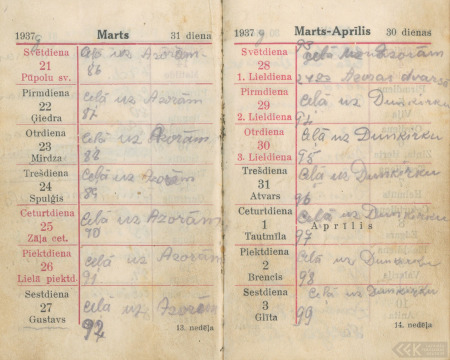 1937 g. Marts 31 diena
Svētdiena ceļā uz Azorām
21 86
Pūpolu sv.
Pirmdiena ceļā uz Azorām
22 87
Ģiedra
Otrdiena ceļā uz Azorām
23 88
Mirdza
Trešdiena ceļā uz Azorām
24 89
Spulģis
Ceturtdiena ceļā uz Azorām
25 90
Zāļa cet.
Piektdiena ceļā uz Azorām
26 91
Lielā piektd.
Sestdiena ceļā uz Azorām
27 92
Gustavs
13. nedēļa
1937 g. Marts-Aprilis 30 dienas
93
Svētdiena ceļā uz Azorām
28
1. Lieldiena Azoras
Pirmdiena ceļā uz Dunkirku
29
2. Lieldiena 94
Otrdiena ceļā uz Dunkirku
30
3. Lieldiena 95
Trešdiena ceļā uz Dunkirku
31
Atvars 96
Ceturtdiena ceļā uz Dunkirku
1 Aprīlis
Tautmīla 97
Piektdiena ceļā uz Dunkirku
2
Brencis 98
Sestdiena ceļā uz Dunkirku
3
Glīta 99
14. nedēļa